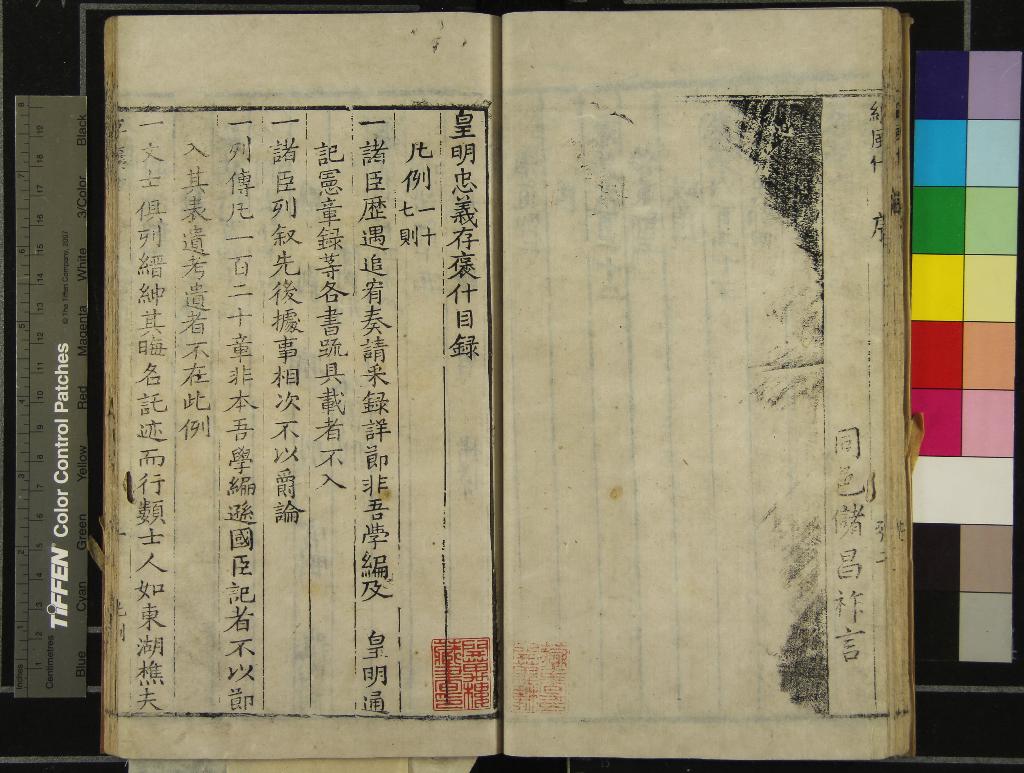 同邑儲昌祚言
皇明忠義存褒什目録
凡例一十七則
一諸臣歷遇追宥奏請采錄詳節非吾學編及 皇明通
記憲章録等各書䟽具載者不入
一諸臣列叙先後據事相次不以爵論
一列傳凡一百二十章非本吾學編遜國臣記者不以節
入其表遺考遺者不在此例
一文士俱列縉紳其晦名託迹而行類士人如東湖樵夫
序
TIFFEN Color Control Patches
© The Tiffen Company, 2007
Blue Cyan Green Yellow Red Magenta White 3/Color Black
Inches
Centimetres